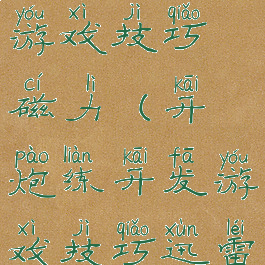 yóu xì jì qiǎo
游戏技巧
cí lì kāi
磁力（开
pào liàn kāi fā yóu
炮练开发游
xì jì qiǎo xùn léi
戏技巧迅雷